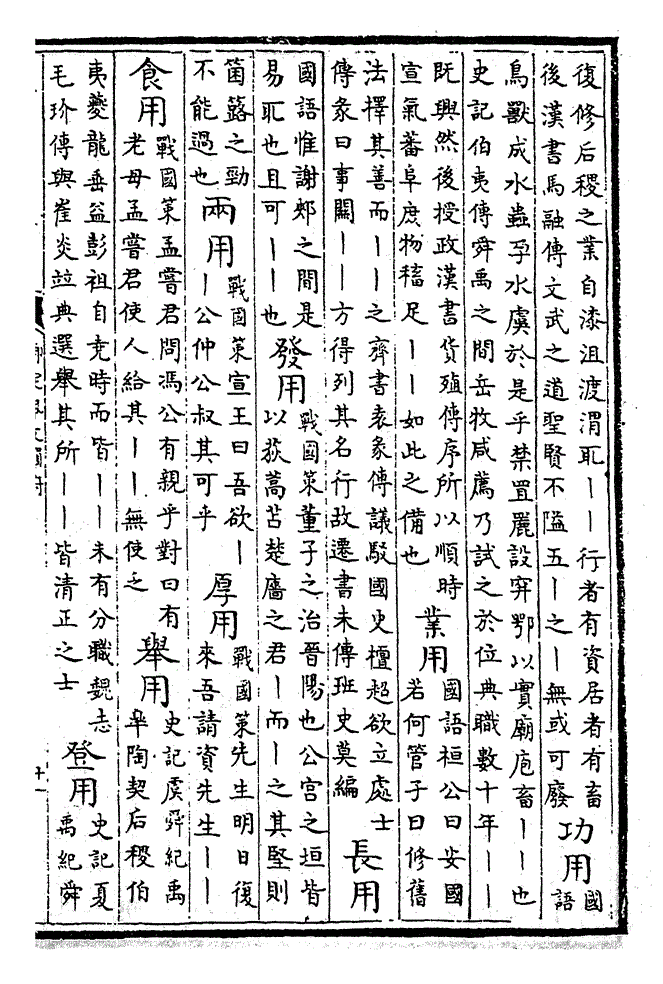 復修后稷之業自漆沮渡渭取——行者有資居者有畜
後漢書馬融傳文武之道聖賢不隘五—之—無或可廢
功用
國
語
鳥獸成水蟲孕水虞於是乎禁罝麗設穽鄂以實廟庖畜——也
史記伯夷傳舜禹之間岳牧咸薦乃試之於位典職數十年——
既興然後授政漢書貨殖傳序所以順時
宣氣蕃阜庶物稸足——如此之備也
業用
國語桓公曰安國
若何管子曰修舊
法擇其善而——之齊書袁彖傳議駁國史檀超欲立處士
傳彖曰事關——方得列其名行故遷書未傳班史莫編
長用
國語惟謝郟之間是
易取也且可——也
發用
戰國策董子之治晉陽也公宮之垣皆
以荻蒿苫楚廧之君—而—之其堅則
箘簬之勁
不能過也
兩用
戰國策宣王曰吾欲—
—公仲公叔其可乎
厚用
戰國策先生明日復
來吾請資先生——
食用
戰國策孟嘗君問馮公有親乎對曰有
老母孟嘗君使人給其——無使乏
舉用
史記虞舜紀禹
皋陶契后稷伯
夷夔龍垂益彭祖自堯時而皆——未有分職魏志
毛玠傳與崔琰竝典選舉其所——皆清正之士
登用
史記夏
禹紀舜